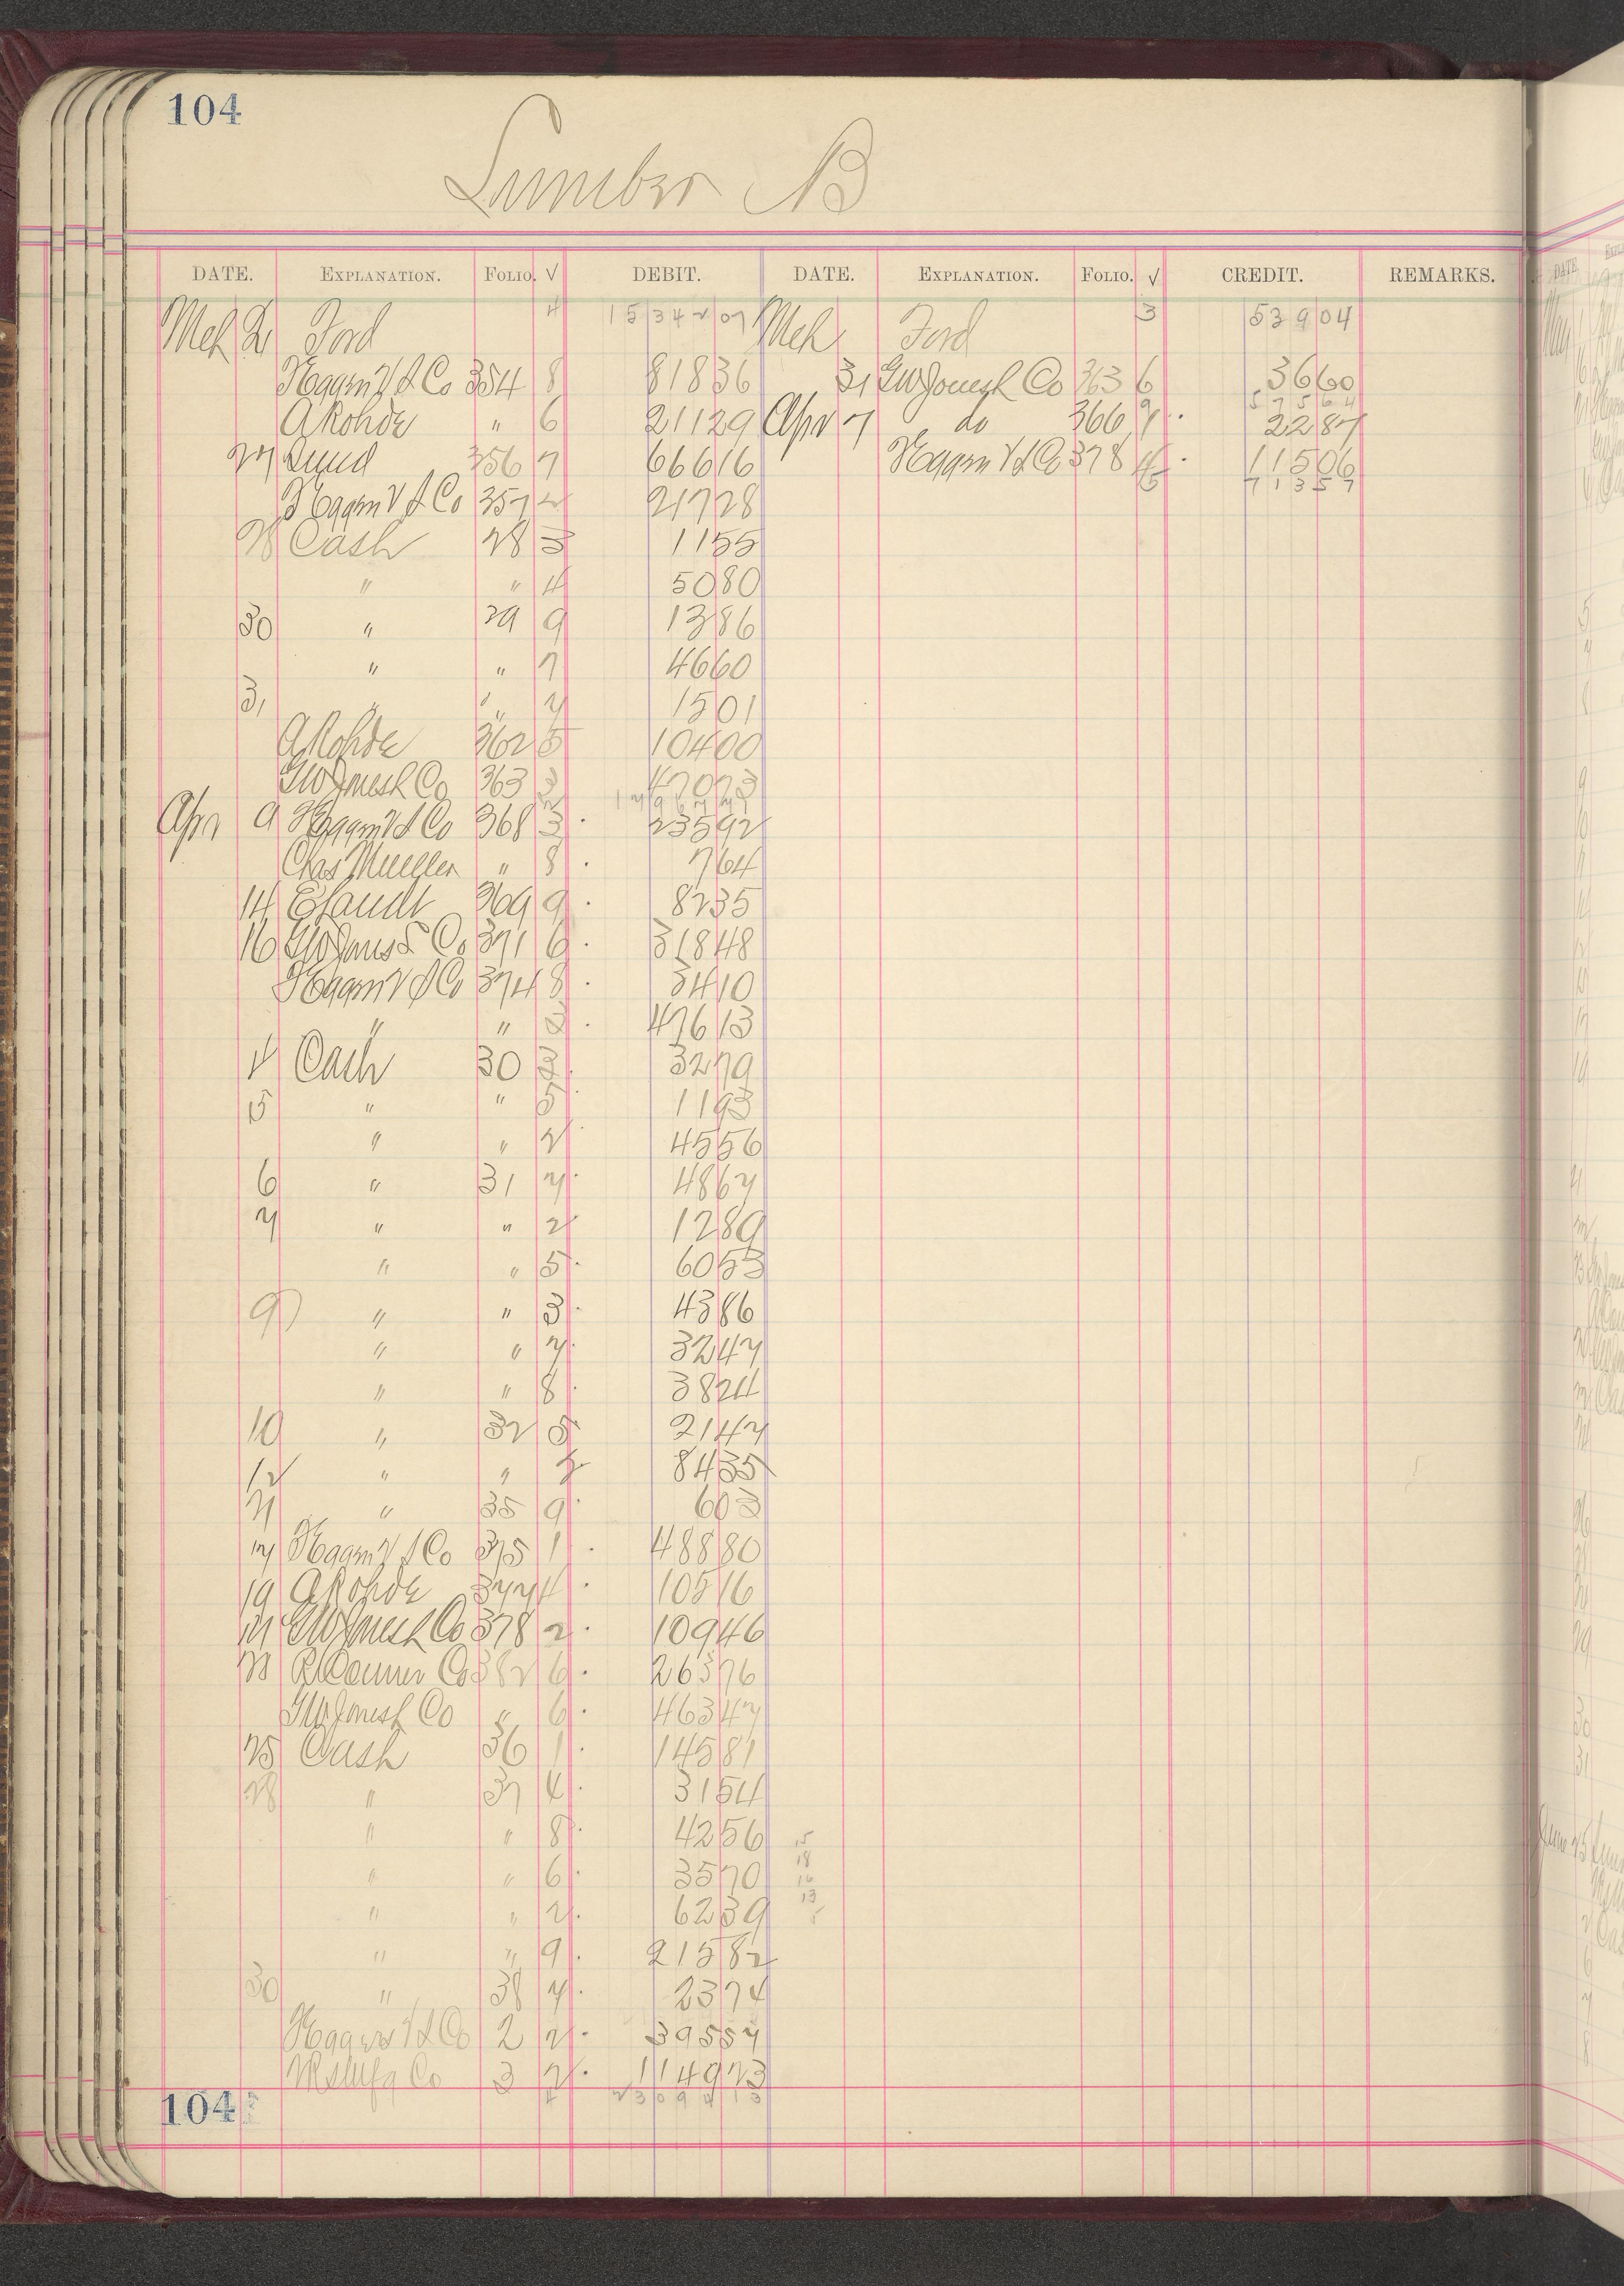 104
Lumber B
DATE. EXPLANATION. FOLIO. √ DEBIT. DATE. EXPLANATION. FOLIO. √ CREDIT. REMARKS.
Mch Ford 4 1534207 Mch Ford 3 53904
354 8 81836 31 GWJones L Co 363 6 3660
57564
ARohde " 6 21129 Apr 7 do 366 9 2287
27 Lund 356 7 66616 378 11506
71357
357 2 21728
28 Cash 28 3 1155
" " 4 5080
30 " 29 9 1386
" " 7 4660
31 " " 7 1501
ARohde 362 5 10400
GWJones L Co 363 3 47073
Apr 9 368 3 23592
Chas Mueller " 8 764
14 369 9 8235
16 GWJones L Co 371 6 31848
374 8 3410
" " 2 47613
4 Cash 30 3279
5 " " 5 1193
" " 2 4556
6 " 31 7 4867
7 " " 2 1289
" " 5 6053
9 " " 3 4386
" " 7 3247
" " 8 3824
10 " 32 5 2147
12 " " 2 8435
21 " 35 9 603
17 375 1 48880
19 ARohde 377 4 10516
21 GWJones L Co 378 2 10946
23 RConnor Co 382 6 26376
GWJones L Co " 6 46347
25 Cash 36 1 14581
28 " 37 4 3154
" " 8 4256
15
18
" " 6 3570
16
13
" " 2 6239
5
" " 9 21582
30 " 38 7 2374
2 2 39557
Mfg Co 3 2 114973
104